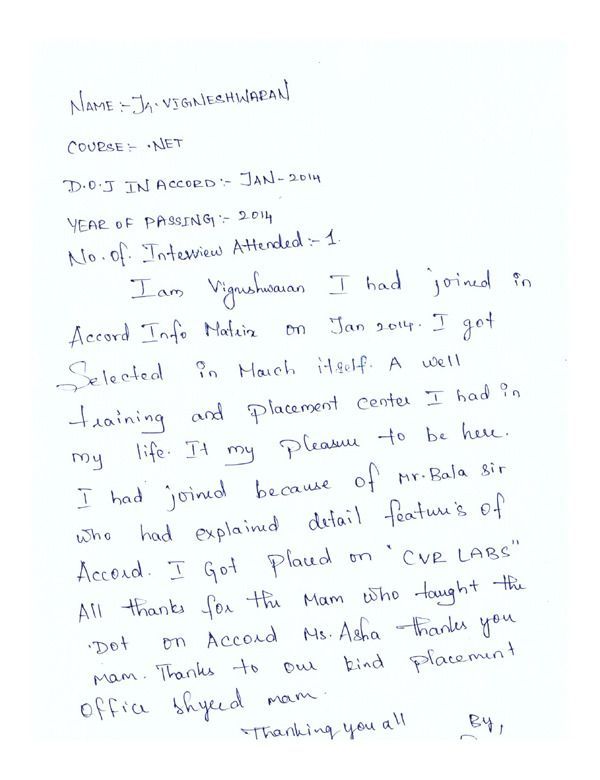 NAME :- J. VIGNESHWARAN
COURSE :- .NET
D.O.J IN ACCORD :- JAN-2014
YEAR OF PASSING :- 2014
No. of. Interview Attended :- 1.
I am Vigneshwaran I had joined in
Accord Info Matrix on Jan 2014. I got
Selected in March itself. A well
training and placement center I had in
my life. It my pleasure to be here.
I had joined because of Mr. Bala sir
who had explained detail feature's of
Accord. I Got placed on "CVR LABS"
All thanks for the Mam who taught the
.Dot on Accord Ms. Asha thanks you
mam. Thanks to our kind placement
office shyed mam.
Thanking you all By,